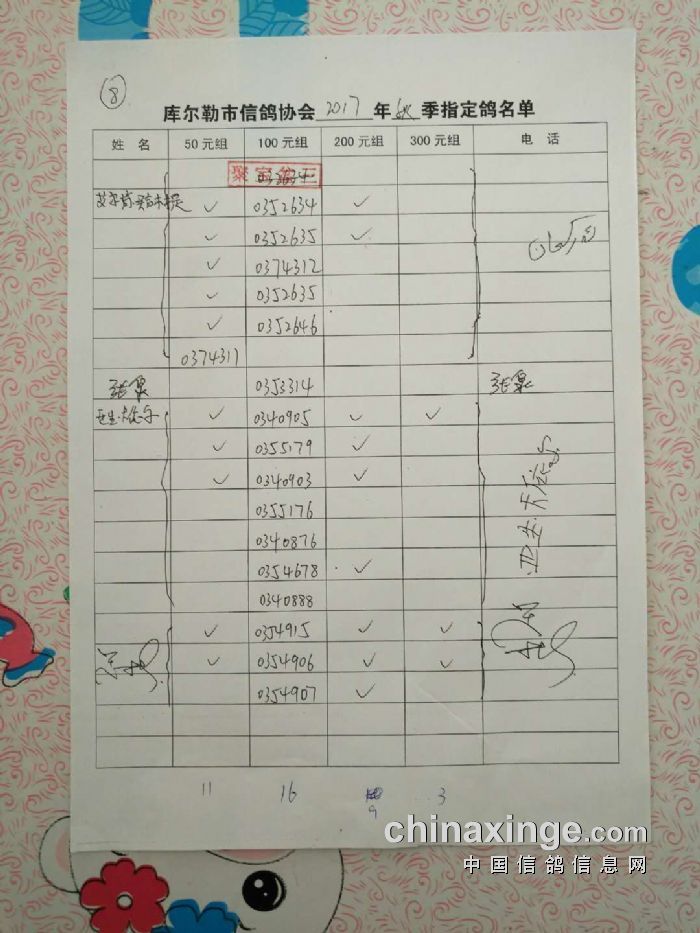 8
库尔勒市信鸽协会 2017 年 秋 季指定鸽名单
姓 名 50元组 100元组 200元组 300元组 电 话
聚宝第三
✓ 0352634 ✓
✓ 0352635 ✓
✓ 0374312
✓ 0352635
✓ 0352646
0374311
0353314
✓ 0340905 ✓ ✓
✓ 0355179 ✓
✓ 0340903 ✓
0355176
0340876
0354678 ✓
0340888
✓ 0354915 ✓ ✓
✓ 0354906 ✓ ✓
0354907 ✓
11 16 9 3
chinaxinge.com
中国信鸽信息网